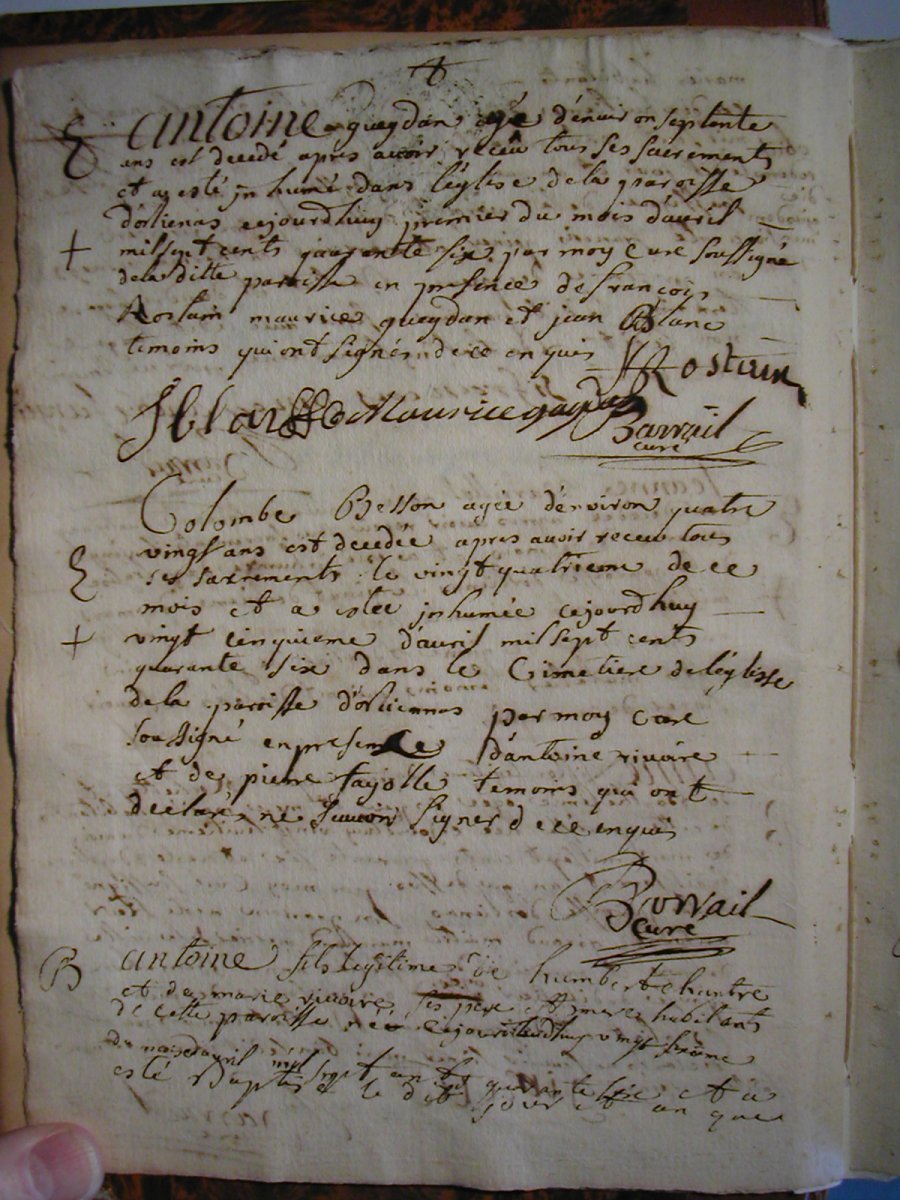 E antoine gueydan agé d'enuiron septente
ans est decedé apres auoir receu tous ses sacrements
et a esté jnhumé dans l'église de la paroisse
d'oslienas cejourdhuy premier du mois d'auril
+ mil sept cents quarante six par moy curé soussigné
de la ditte paroisse en presence de francois
Rostain maurice gueydan et jean Blanc
temoins qui ont signés de ce enquis Rostain
JBlanc Maurice gueydan
Barrail
curé
Colombe Besson agée d'enuiron quatre
vingt ans est decedée apres auoir receu tous
ses sacrements le vingt quatrieme de ce
mois et a estee jnhumée cejourdhuy
+ vingt cinquieme d'auril mil sept cents
quarante six dans le Cimetiere de léglisse
de la paroisse d'osliennas par moy curé
soussigné en presence d'antoine riuoire
et de pierre fayolle temoins qui ont
déclaré ne scauoir signer de ce enquis
Barrail
curé
B antoine fils legitime de humbert chantre
et de marie riuoire ses pere et mere habitants
de cette paroisse né cejourdhuy vingt sixieme
du mois d'auril mil sept cents quarante six et a
esté Baptisé le dit jour et an que